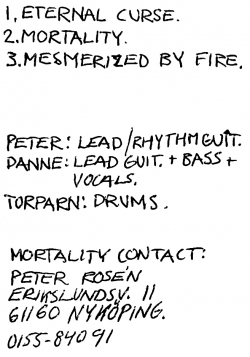 1, ETERNAL CURSE.
2. MORTALITY.
3. MESMERIZED BY FIRE.
PETER: LEAD/RHYTHM GUIT.
DANNE: LEAD GUIT. + BASS +
VOCALS.
TORPARN: DRUMS.
MORTALITY CONTACT:
PETER ROSÉN
ERIKSLUNDSV. 11
61160 NYKÖPING.
0155-84091